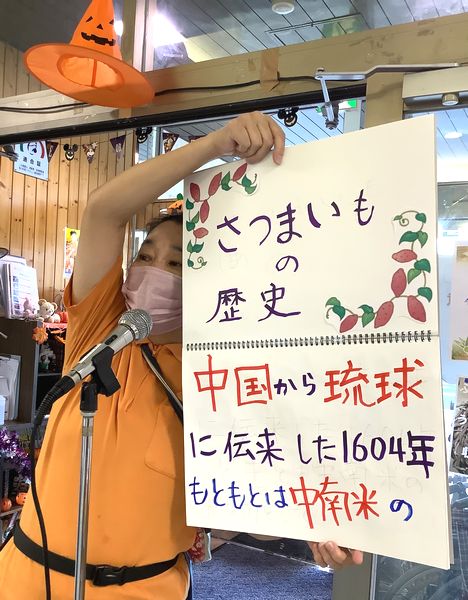 さつまいも
の
歴史
中国から琉球
に伝来した1604年
もともとは中南米の